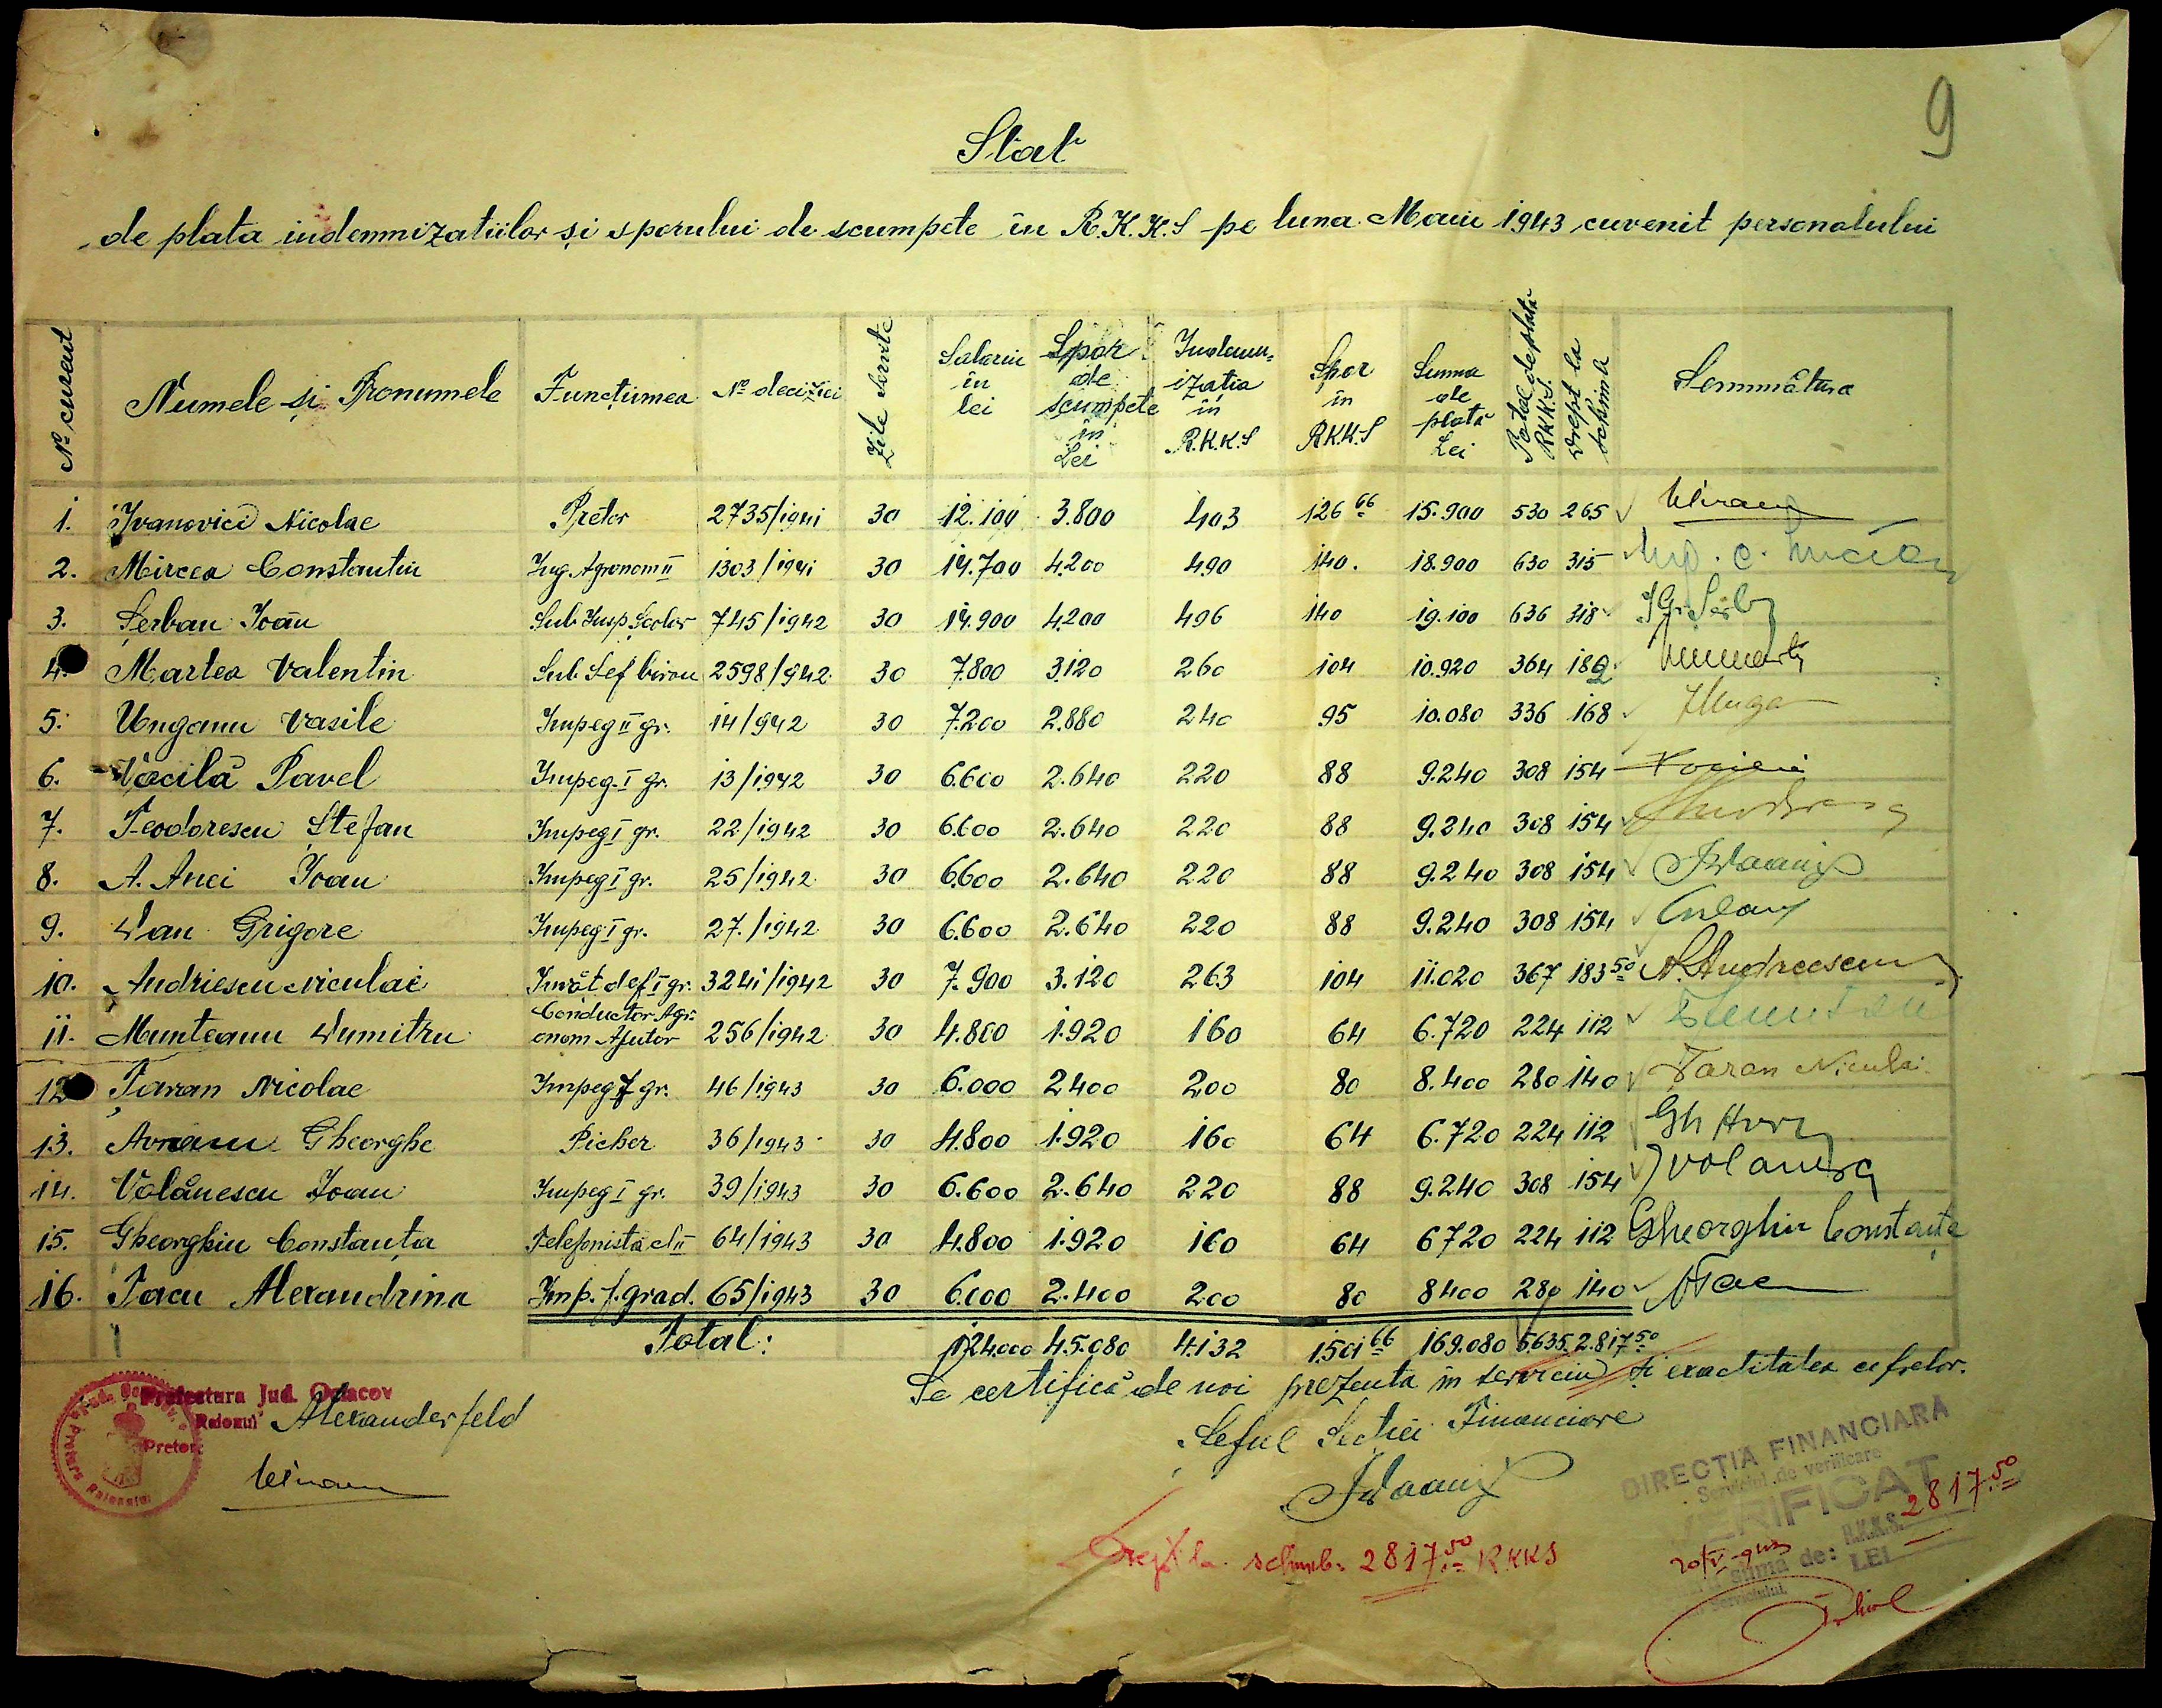 9
Stat
de plata indemnizatiilor și sporului de scumpete în R.K.K.S pe luna Maiu 1943 cuvenit personalului
No curent Numele și Pronumele Funcțiunea No deciziei Zile servite Salariu în lei Spor de scumpete în Lei Indemnizația în R.K.K.S Spor în R.K.K.S Suma de plată Lei Total de plată R.K.K.S. Drept la schimb Semnătura
1. Ivanovici Nicolae Pretor 2735/1941 30 12.100 3.800 403 126 66 15.900 530 265
2. Mircea Constantin Ing. Agronom II 1303/1941 30 14.700 4.200 490 140. 18.900 630 315
3. Șerban Ioan Sub Insp Școlar 745/1942 30 14.900 4.200 496 140 19.100 636 318
4. Martea Valentin Sub Șef birou 2598/942 30 7.800 3.120 260 104 10.920 364 182
5. Unganu Vasile Impeg II gr. 14/942 30 7.200 2.880 240 95 10.080 336 168
6. Văcilă Pavel Impeg. I gr. 13/1942 30 6.600 2.640 220 88 9.240 308 154
7. Teodorescu Ștefan Impeg I gr. 22/1942 30 6.600 2.640 220 88 9.240 308 154
8. A. Anei Ioan Impeg I gr. 25/1942 30 6.600 2.640 220 88 9.240 308 154
9. Dan Grigore Impeg I gr. 27./1942 30 6.600 2.640 220 88 9.240 308 154
10. Andriescu Niculai Învăt def I gr. 3241/1942 30 7.900 3.120 263 104 11.020 367 183 50 N. Andreescu
11. Munteanu Dumitru Conductor Agronom Ajutor 256/1942 30 4.800 1.920 160 64 6.720 224 112
12 Țaran Nicolae Impeg f gr. 46/1943 30 6.000 2400 200 80 8.400 280 140 Țaran Niculai
13. Avram Gheorghe Picher 36/1943 30 4.800 1.920 160 64 6.720 224 112
14. Volănescu Ioan Impeg I gr. 39/1943 30 6.600 2.640 220 88 9.240 308 154
15. Gheorghiu Constanța Telefonistă cl II 64/1943 30 4.800 1.920 160 64 6720 224 112 Gheorghiu Constanța
16. Tacu Alexandrina Imp. f. grad. 65/1943 30 6.000 2.400 200 80 8400 280 140
Total: 124.000 45.080 4.132 1.501 66 169.080 5.635 2.817 50
Se certifică de noi prezenta în serviciu și exactitatea cifrelor.
Prefectura Jud. Oceacov
Raionul Alexanderfeld
Pretor
Șeful Secției Financiare
Drept la schimb: 2817 50 RKKS
DIRECTIA FINANCIARA
Serviciul de verificare
VERIFICAT
suma de: R.K.K.S. 2817.50
LEI
20/V-943
Serviciului